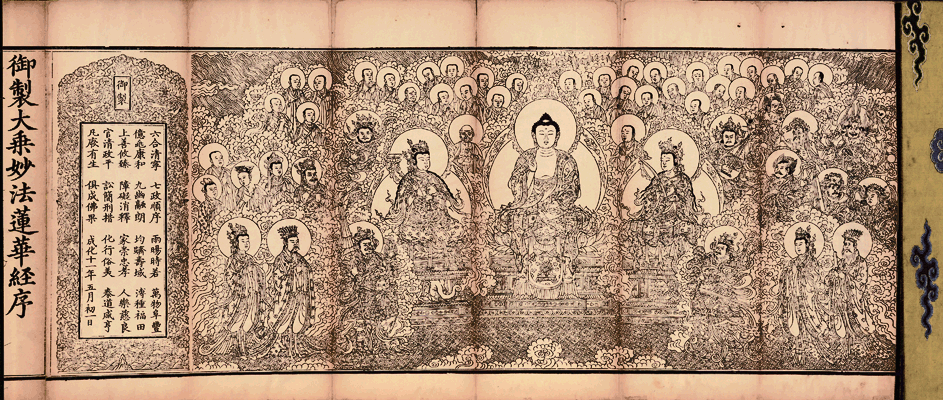 御製
六合清寧 七政順序 雨暘時若 萬物阜豐
億兆康和 九幽融朗 均躋壽域 溥種福田
上善攸臻 障礙消釋 家崇忠孝 人樂慈良
官清政平 訟簡刑措 化行俗美 泰道咸亨
凡厥有生 俱成佛果 成化十二年五月初一日
御製大乗妙法蓮華経序